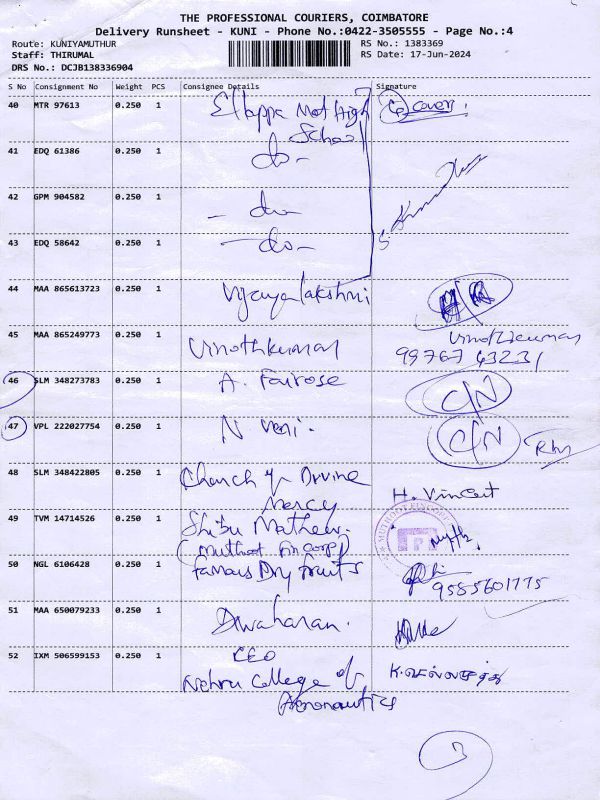 THE PROFESSIONAL COURIERS, COIMBATORE
Delivery Runsheet - KUNI - Phone No.:0422-3505555 - Page No.:4
Route: KUNIYAMUTHUR
RS No.: 1383369
Staff: THIRUMAL
RS Date: 17-Jun-2024
DRS No.: DCJB138336904
S No Consignment No Weight PCS Consignee Details Signature
40 MTR 97613 0.250 1 Ellappa Mat High
School
covers.
41 EDQ 61386 0.250 1 -do-
42 GPM 904582 0.250 1 -do-
43 EDQ 58642 0.250 1 -do-
44 MAA 865613723 0.250 1 Vijayalakshmi
45 MAA 865249773 0.250 1 Vinothkumar Vinothkumar
99767 43231
46 SLM 348273783 0.250 1 A. Fairose C/N
47 VPL 222027754 0.250 1 N Veni. C/N
48 SLM 348422805 0.250 1 Church of Divine
Mercy
H. Vincent
49 TVM 14714526 0.250 1 Shibu Mathew.
(Muthoot Fincorp)
MUTHOOT FINCORP
50 NGL 6106428 0.250 1 Famous Dry fruits
9585601775
51 MAA 650079233 0.250 1 Diwaharan.
52 IXM 506599153 0.250 1 CEO
Nehru College of
Aeronautics
3